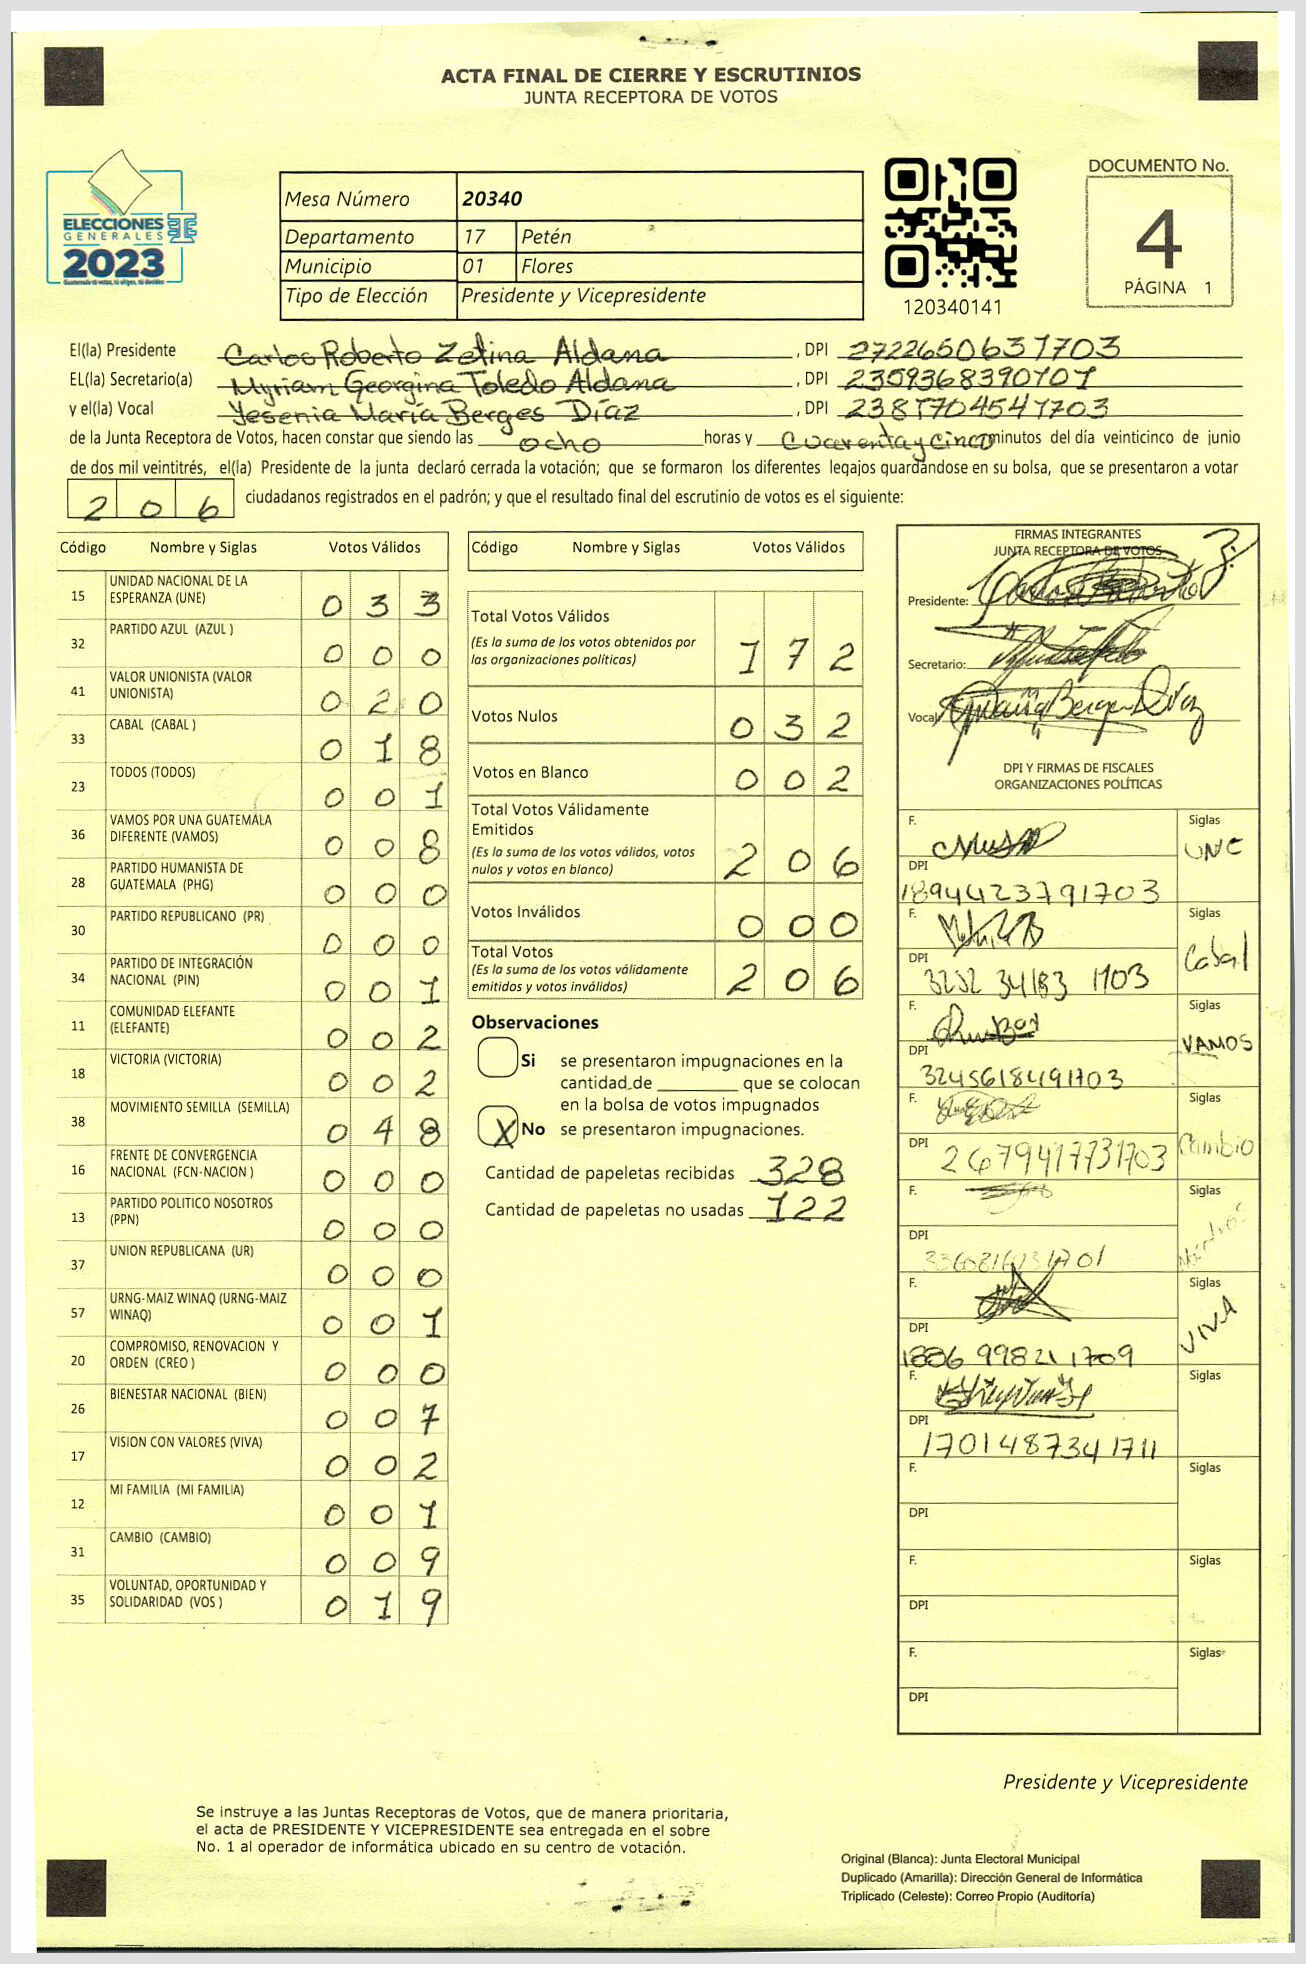 ACTA FINAL DE CIERRE Y ESCRUTINIOS
JUNTA RECEPTORA DE VOTOS
ELECCIONES
GENERALES
2023
Mesa Número 20340
Departamento 17 Petén
Municipio 01 Flores
Tipo de Elección Presidente y Vicepresidente
120340141
DOCUMENTO No.
4
PÁGINA 1
El(la) Presidente Carlos Roberto Zetina Aldana, DPI 2722650631703
EL(la) Secretario(a) Myriam Georgina Toledo Aldana, DPI 2359368390101
y el(la) Vocal Yesenia María Berges Díaz, DPI 2381704541703
de la Junta Receptora de Votos, hacen constar que siendo las ocho horas y cuarenta y cinco minutos del día veinticinco de junio
de dos mil veintitrés, el(la) Presidente de la junta declaró cerrada la votación; que se formaron los diferentes legajos guardándose en su bolsa, que se presentaron a votar
206 ciudadanos registrados en el padrón; y que el resultado final del escrutinio de votos es el siguiente:
Código Nombre y Siglas Votos Válidos
15 UNIDAD NACIONAL DE LA ESPERANZA (UNE) 033
32 PARTIDO AZUL (AZUL ) 000
41 VALOR UNIONISTA (VALOR UNIONISTA) 020
33 CABAL (CABAL ) 018
23 TODOS (TODOS) 001
36 VAMOS POR UNA GUATEMALA DIFERENTE (VAMOS) 008
28 PARTIDO HUMANISTA DE GUATEMALA (PHG) 000
30 PARTIDO REPUBLICANO (PR) 000
34 PARTIDO DE INTEGRACIÓN NACIONAL (PIN) 001
11 COMUNIDAD ELEFANTE (ELEFANTE) 002
18 VICTORIA (VICTORIA) 002
38 MOVIMIENTO SEMILLA (SEMILLA) 048
16 FRENTE DE CONVERGENCIA NACIONAL (FCN-NACION ) 000
13 PARTIDO POLITICO NOSOTROS (PPN) 000
37 UNION REPUBLICANA (UR) 000
57 URNG-MAIZ WINAQ (URNG-MAIZ WINAQ) 001
20 COMPROMISO, RENOVACION Y ORDEN (CREO ) 000
26 BIENESTAR NACIONAL (BIEN) 007
17 VISION CON VALORES (VIVA) 002
12 MI FAMILIA (MI FAMILIA) 001
31 CAMBIO (CAMBIO) 009
35 VOLUNTAD, OPORTUNIDAD Y SOLIDARIDAD (VOS ) 019
Código Nombre y Siglas Votos Válidos
Total Votos Válidos 172
(Es la suma de los votos obtenidos por
las organizaciones políticas)
Votos Nulos 032
Votos en Blanco 002
Total Votos Válidamente
Emitidos 206
(Es la suma de los votos válidos, votos
nulos y votos en blanco)
Votos Inválidos 000
Total Votos 206
(Es la suma de los votos válidamente
emitidos y votos inválidos)
Observaciones
Si se presentaron impugnaciones en la
cantidad de ________ que se colocan
en la bolsa de votos impugnados
X No se presentaron impugnaciones.
Cantidad de papeletas recibidas 328
Cantidad de papeletas no usadas 122
FIRMAS INTEGRANTES
JUNTA RECEPTORA DE VOTOS
Presidente:
Secretario:
Vocal
DPI Y FIRMAS DE FISCALES
ORGANIZACIONES POLÍTICAS
F. Siglas UNE
DPI 1894423791703
F. Siglas Cabal
DPI 3232 34183 1703
F. Siglas VAMOS
DPI 3245618491703
F. Siglas Cambio
DPI 2679417731703
F. Siglas
DPI
F. Siglas VIVA
DPI 1886 99821 1709
F. Siglas
DPI 1701487341711
F. Siglas
DPI
F. Siglas
DPI
F. Siglas
DPI
Presidente y Vicepresidente
Se instruye a las Juntas Receptoras de Votos, que de manera prioritaria,
el acta de PRESIDENTE Y VICEPRESIDENTE sea entregada en el sobre
No. 1 al operador de informática ubicado en su centro de votación.
Original (Blanca): Junta Electoral Municipal
Duplicado (Amarilla): Dirección General de Informática
Triplicado (Celeste): Correo Propio (Auditoría)